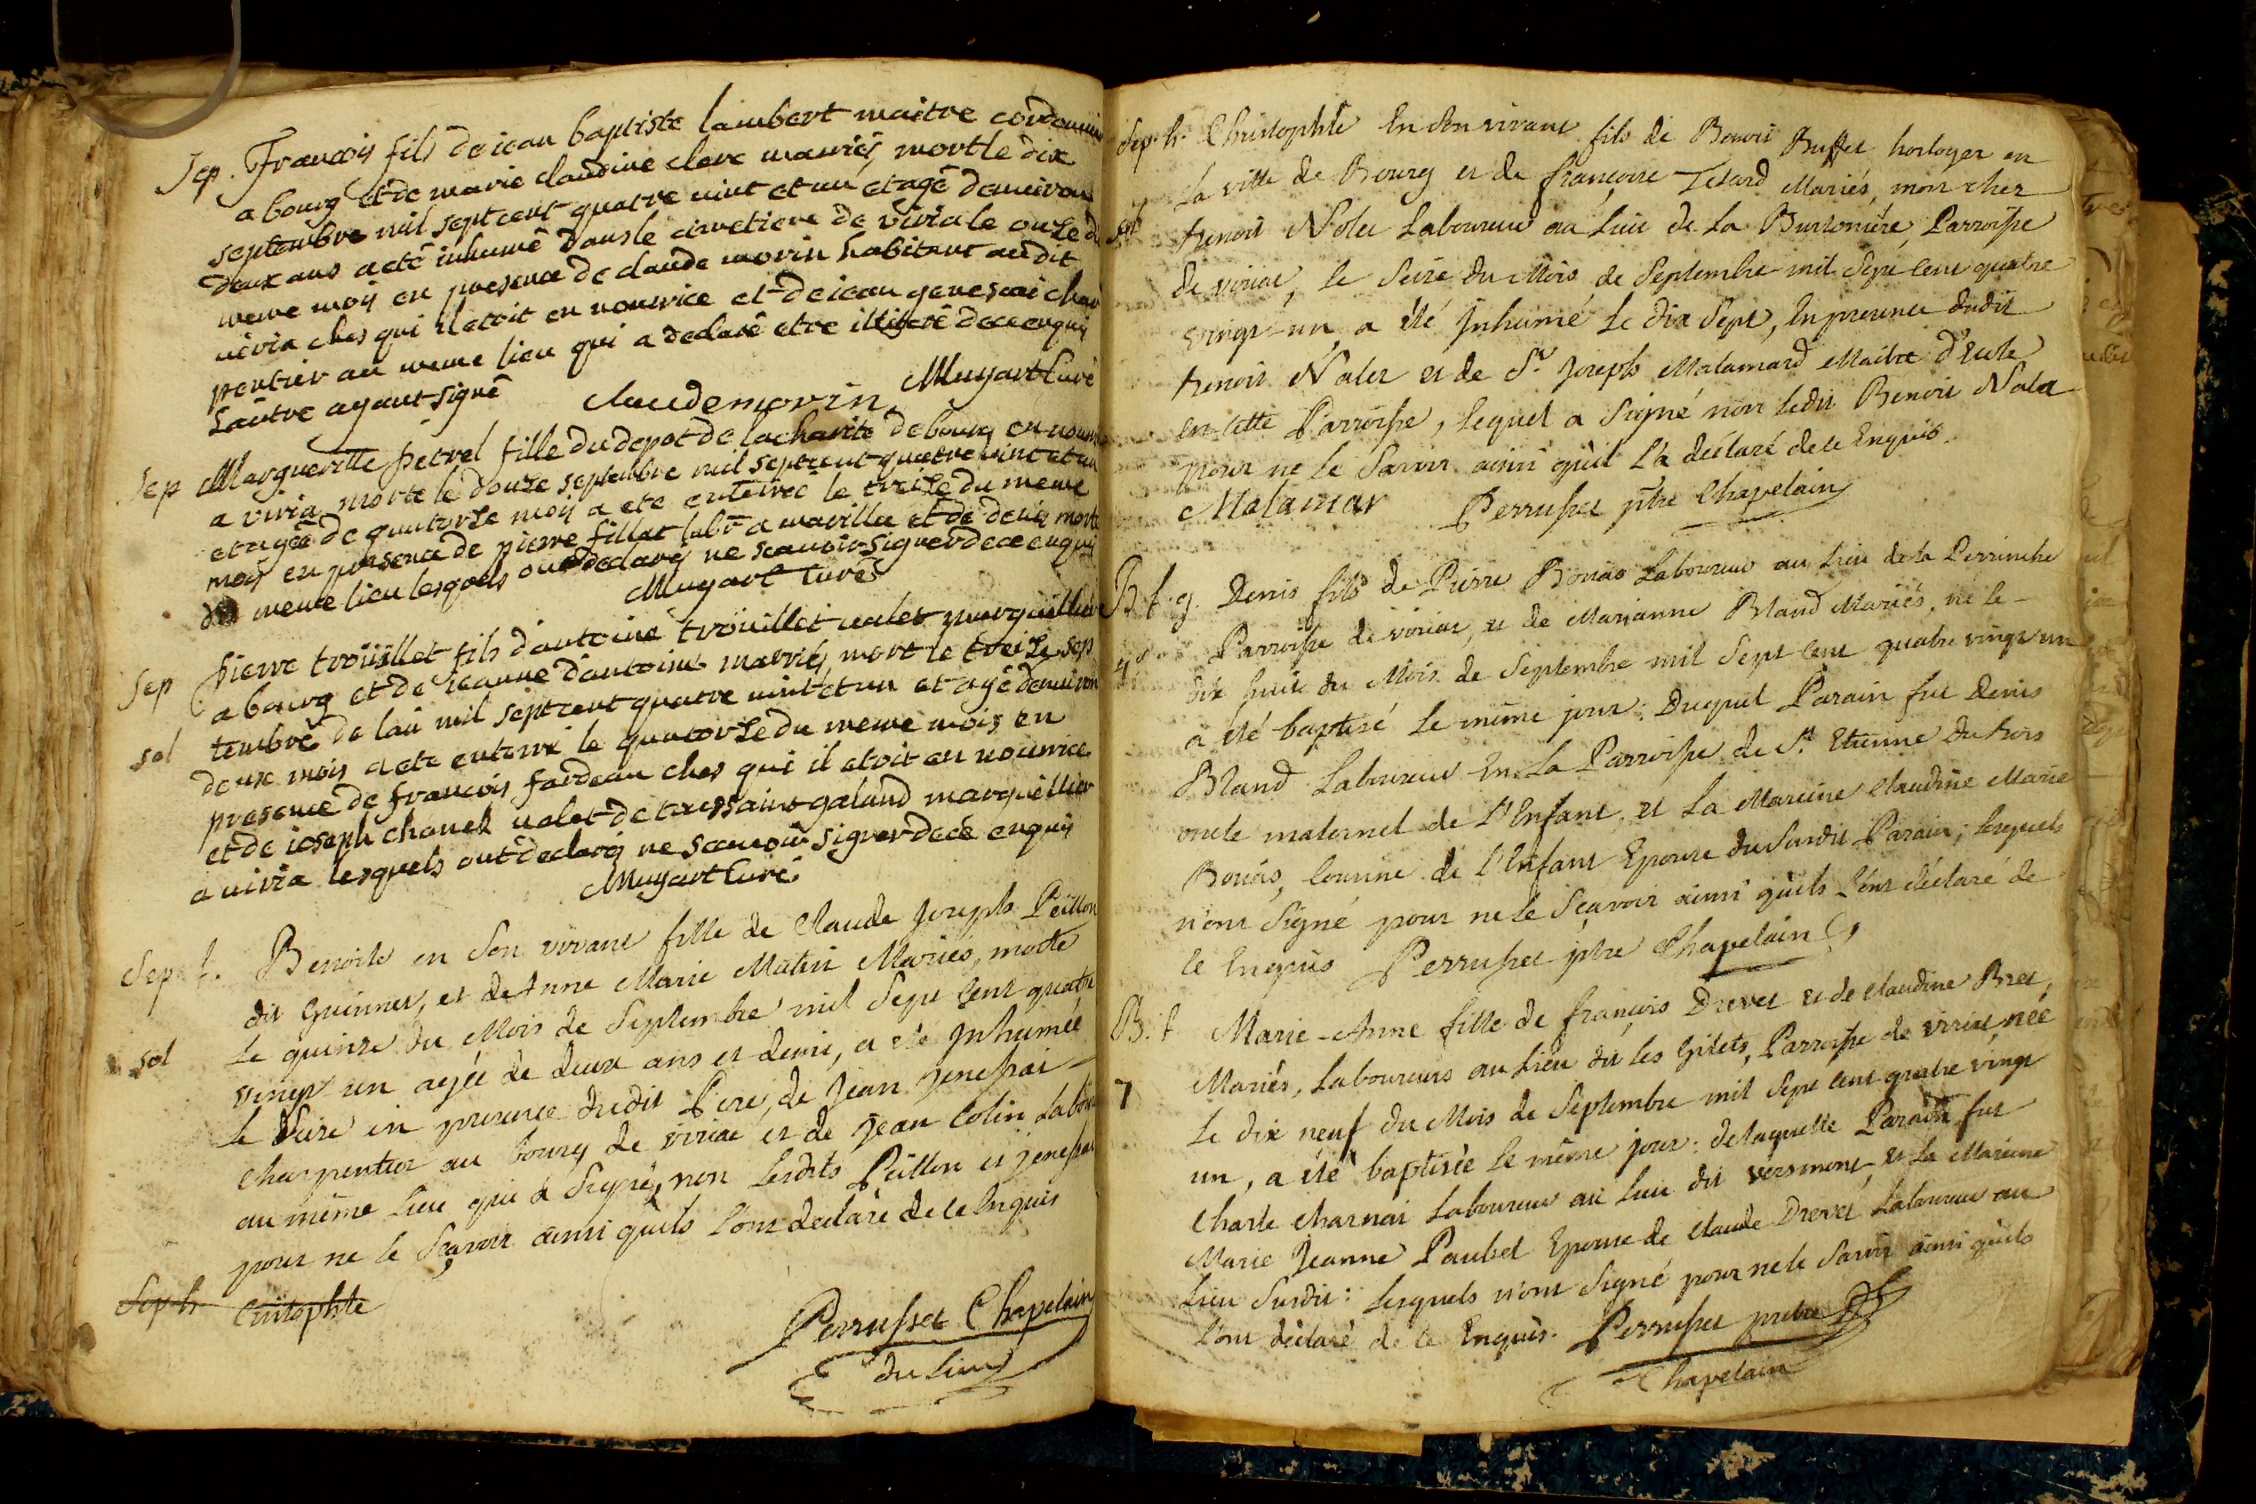 Sep. François fils de jean baptiste lambert maitre cordonnier
a bourg et de marie claudine clerc mariés, mort le dix
septembre mil sept cent quatre vint et un, et agé d'environ
deux ans a eté inhumé dans le cimetiere de viria le onze du
meme mois en presence de claude morin habitant audit
viria ches qui il etoit en nourrice et de jean genessai char
pentier au meme lieu qui a declaré etre illiteré de ce enquis
l'autre ayant signé
claude morin Muyart Curé
Sep Margueritte petrel fille du depot de la charité de bourg en nourrice
a viria morte le douze septembre mil sept cent quatre vint et un
et agée de quatorze mois a ete enterrée le treize du meme
mois en presence de pierre fillet lab.r a marillia et de denis morte
du meme lieu lesquels ont declaré ne scauoir signer de ce enquis
Muyart Curé
Sep pierre troüillet fils d'antoine troüillet valet
a bourg et de jeanne d'antoine mariés, mort le treize sep
sol tembre de l'an mil sept cent quatre vint et un et agé d'environ
deux mois a ete enterré le quatorze du meme mois en
presence de françois fardeau ches qui il etoit en nourrice
et de joseph chanel valet de toussaint galand marguillier
a viria lesquels ont declaré ne scauoir signer de ce enquis
Muyart Curé
Sep. f. Benoite en son vivant fille de Claude Joseph Peillon
dit Guinnet, et de Anne Marie Matin Mariés, morte
le quinze du Mois de Septembre mil Sept Cent quatre
sol vingt un agée de deux ans et demi, a eté Inhumée
le Seize in presence dudit Pere, de Jean Jenessai
Charpentier au bourg de viriat et de Jean Colin Labour
au même Lieu qui a Signé, non Lesdits Peillon et Jenessai
pour ne le Sçavoir ainsi qu'ils l'ont declaré de ce Enquis
Sep. h. Cristophle
Perrusset Chapelain
du Lieu
Sep. h. Christophle En Son vivant fils de Benoit Buffet horloger en
la ville de Bourg et de françoise Tetard Mariés, mort chez
sol benoit Nolet Laboureur au Lieu de La Burtoniére, Parroisse
de viriat, le Seize du Mois de Septembre mil Sept Cent quatre
vingt-un, a eté Inhumé le dix Sept, En presence dudit
benoit Nalet et de Sr Joseph Malamard Maitre d'Ecole
en cette Parroisse, lequel a Signé non ledit Benoit Nalet
pour ne le Savoir ainsi qu'il l'a déclaré de ce Enquis.
Malamar Perrusset ptre Chapelain
B. f. g. Denis fils de Pierre Bouas Laboureur au Lieu de la Perrinche
Parroisse de viriat, et de Marianne Bland Mariés, né le
dix huit du Mois de Septembre mil Sept Cent quatre vingt un
a été baptisé le même jour; Duquel Parain fut Denis
Bland Laboureur En La Parroisse de St Etienne du bois
oncle maternel de l'Enfant, et la Mareine Claudine Marie
Bouas, Cousine de l'Enfant Epouse du Susdit Parain; lesquels
n'ont Signé pour ne le Sçavoir ainsi qu'ils l'ont déclaré de
ce Enquis Perrusset ptre Chapelain
B. f Marie-Anne fille de françois Drevet et de Claudine Bret,
Mariés, Laboureurs au Lieu dit les Gilets, Parroisse de viriat née
7 le dix neuf du Mois de Septembre mil Sept Cent quatre vingt
un, a été baptisée le même jour: de laquelle Parain fut
Charle Charnai Laboureur au Lieu dit vermont, et la Mareine
Marie Jeanne Paubel Epouse de Claude Drevet Laboureur au
Lieu Susdit: lesquels n'ont Signé pour ne le Savoir ainsi qu'ils
l'ont déclaré de ce Enquis. Perrusset pretre
Chapelain